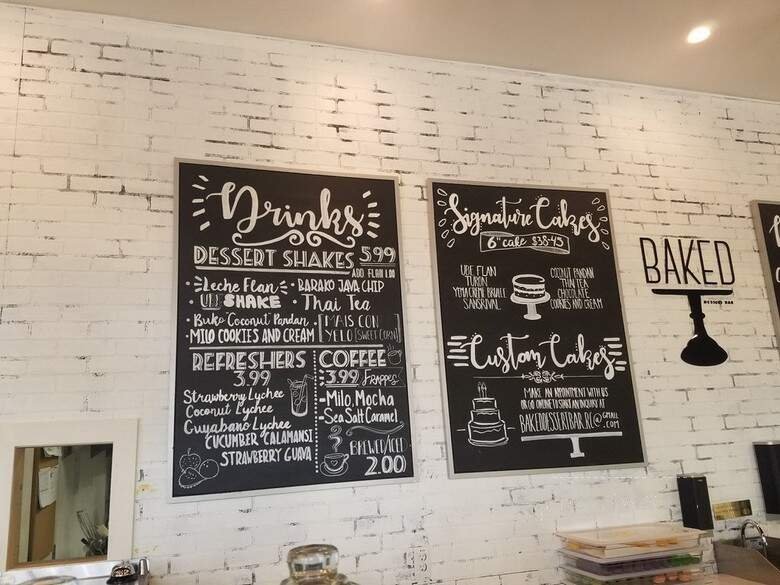 Drinks
DESSERT SHAKES 5.99
ADD FLAN 1.00
Leche Flan • BARAKO JAVA CHIP
UBE SHAKE • Thai Tea
• Buko Coconut Pandan • MAIS CON
• MILO COOKIES AND CREAM YELO (SWEET CORN)
REFRESHERS
3.99
Strawberry Lychee
Coconut Lychee
Guyabano Lychee
CUCUMBER CALAMANSI
STRAWBERRY GUAVA
COFFEE
3.99 FRAPPES
• Milo, Mocha
Sea Salt Caramel
BREWED/ICED
2.00
Signature Cakes
6" cake $38-45
UBE FLAN
TURON
YEMA CREME BRULEE
SANSRIVAL
COCONUT PANDAN
THAI TEA
CHOCOLATE
COOKIES AND CREAM
Custom Cakes
MAKE AN APPOINTMENT WITH US
OR GO ONLINE TO START AN INQUIRY AT
@GMAIL
.COM
BAKED
DESSERT BAR